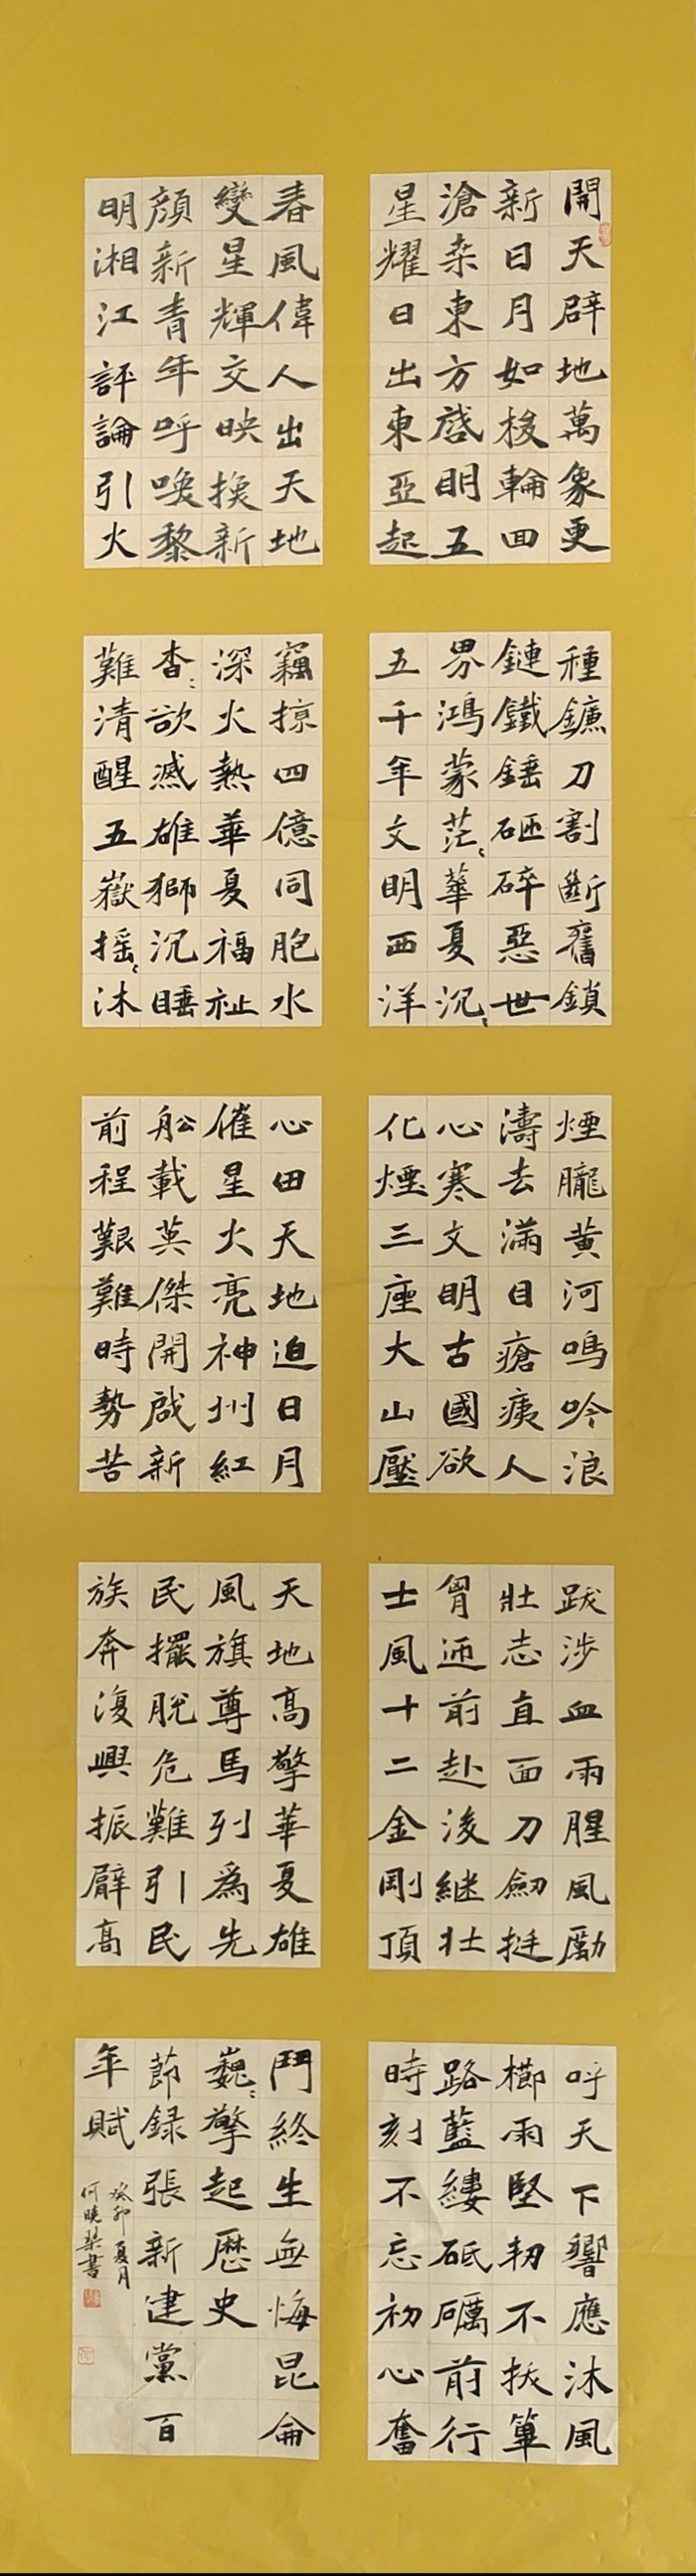 開天辟地萬象更
新日月如梭輪回
滄桒東方啓明五
星耀日出東亞起
春風偉人出天地
變星輝交映換新
顔新青年呼喚黎
明湘江評論引火
種鐮刀割斷舊鎖
鏈鐵錘砸碎惡世
界鴻蒙茫〻華夏沉〻
五千年文明西洋
竊掠四億同胞水
深火熱華夏福祉
杳〻欲滅雄獅沉睡
難清醒五嶽摇〻沐
煙朧黄河嗚吟浪
濤去滿目瘡痍人
心寒文明古國欲
化煙三座大山壓
心田天地迫日月
催星火亮神州紅
船載英傑開啟新
前程艱難時勢苦
跋涉血雨腥風勵
壯志直面刀劍挺
胷迎前赴後継壮
士風十二金剛頂
天地高擎華夏雄
風旗尊馬列爲先
民擺脱危難引民
族奔復興振臂高
呼天下響應沐風
櫛雨堅韧不拔篳
路藍縷砥礪前行
時刻不忘初心奮
鬥終生無悔昆侖
巍〻擎起歷史
節録張新建黨百
年賦
癸卯夏月
何曉梨書